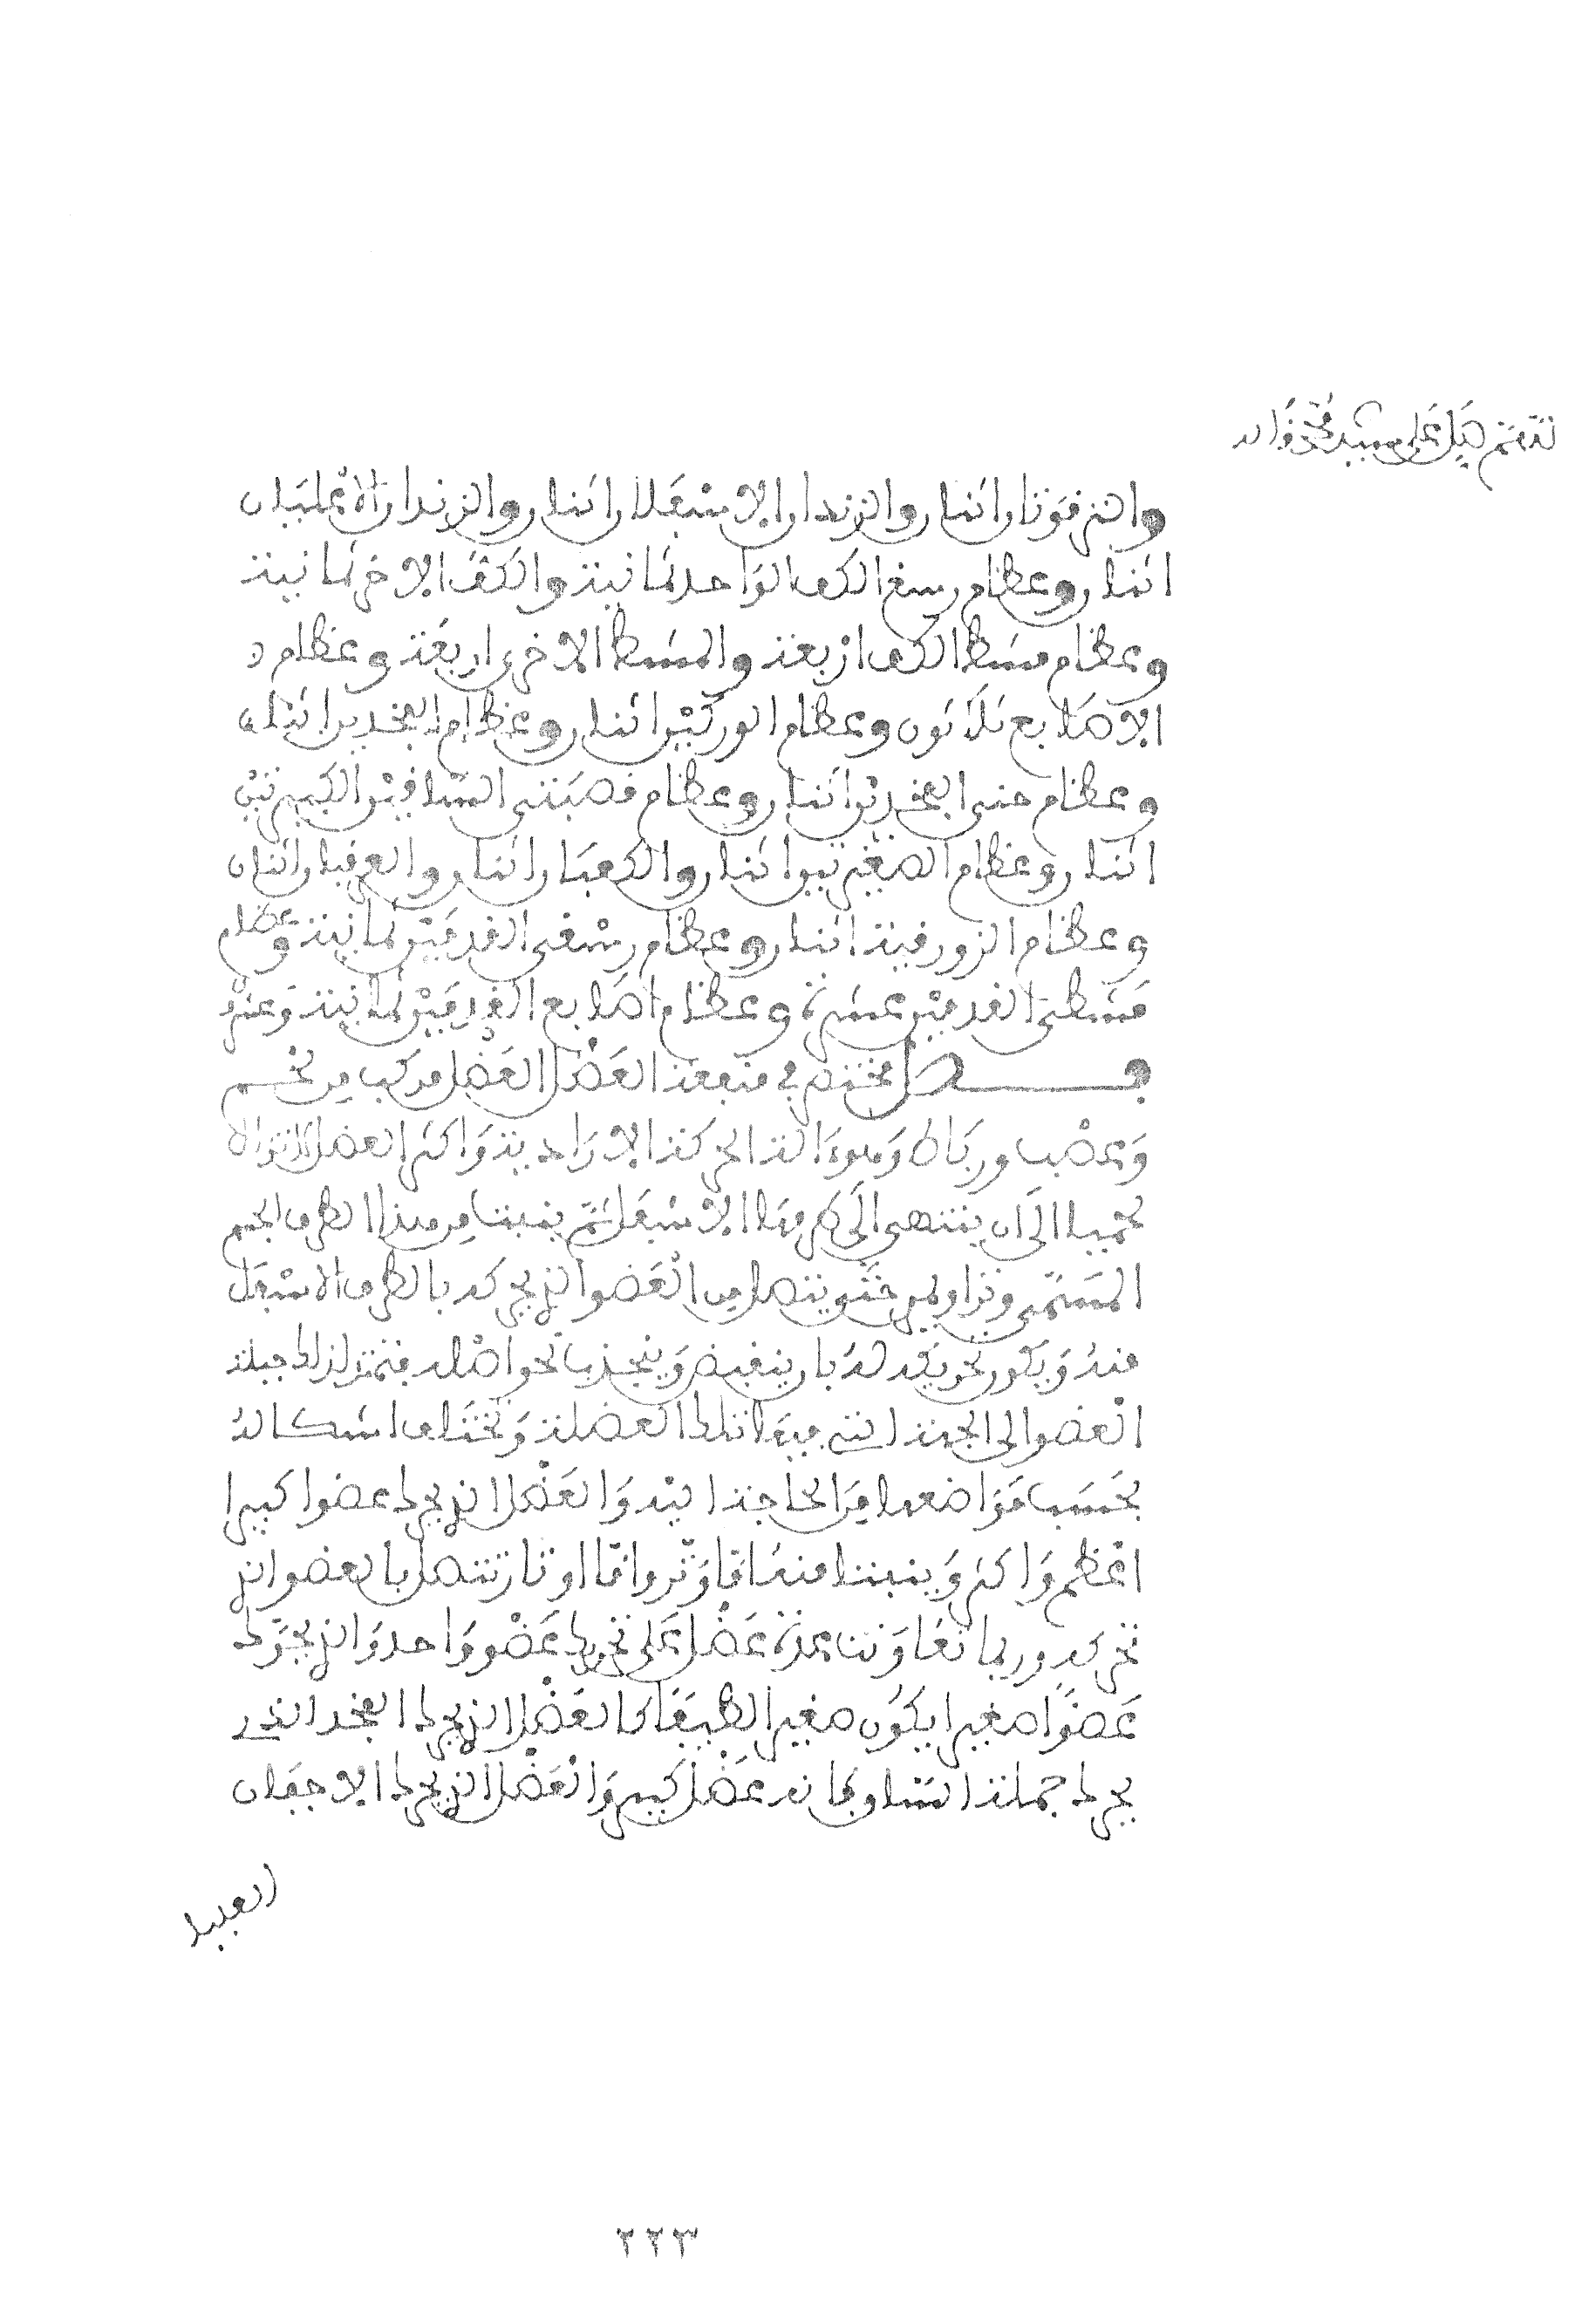 والترقوتان اثنان والزندان الاسفلان اثنان والزندان الاعليان
اثنان وعظام رسغ الكف الواحد ثمانية والكف الاخر ثمانية
وعظام مشط الكف اربعة والمشط الاخر اربعة وعظام
الاصابع ثلاثون وعظام الوركين اثنان وعظام الفخذين اثنان
وعظام الفخذين اثنان وعظام قصبتي الساقين الكبيرتين
اثنان وعظام الصغيرتين اثنان والكعبان اثنان والعرقبان اثنان
وعظام الزورقية اثنان وعظام رسغي القدمين ثمانية وعظام
مشطي القدمين عشرة وعظام اصابع القدمين ثمانية وعشر
فصل مختصر في منفعة العضل العضل مركب من لحم
وعصب ورباط وهو ءالة الحركة الارادية واكثر العضل
لحميا الى ان ينتهي الى طرفها الاسفل ثم ينبت من هذا الطرف الجسم
المسمى وترا وليس حتى يتصل من العضو الذي يحركه بالطرف الاسفل
منه ويكون تحريكه له بان ينقبض وينجذب نحو اصله فتمتد لذلك جملة
العضو الى الجهة التي فيها تلك العضلة وتختلف اشكاله
بحسب مواضعها من الحاجة اليه والعضل الذي يحرك عضوا كبيرا
اعظم واكثر وينبت منه اما وتر واما اوتار تتصل بالعضو الذي
تحركه وربما تعاونت عدة عضل على تحريك عضو واحد والذي يحرك
عضوا صغيرا يكون صغير الطيفا كالعضل الذي يحرك الفخذ الذي
يحرك جملة الساق فانه عضل كبير والعضل الذي يحرك الاجفان
العليا
٢٢٣